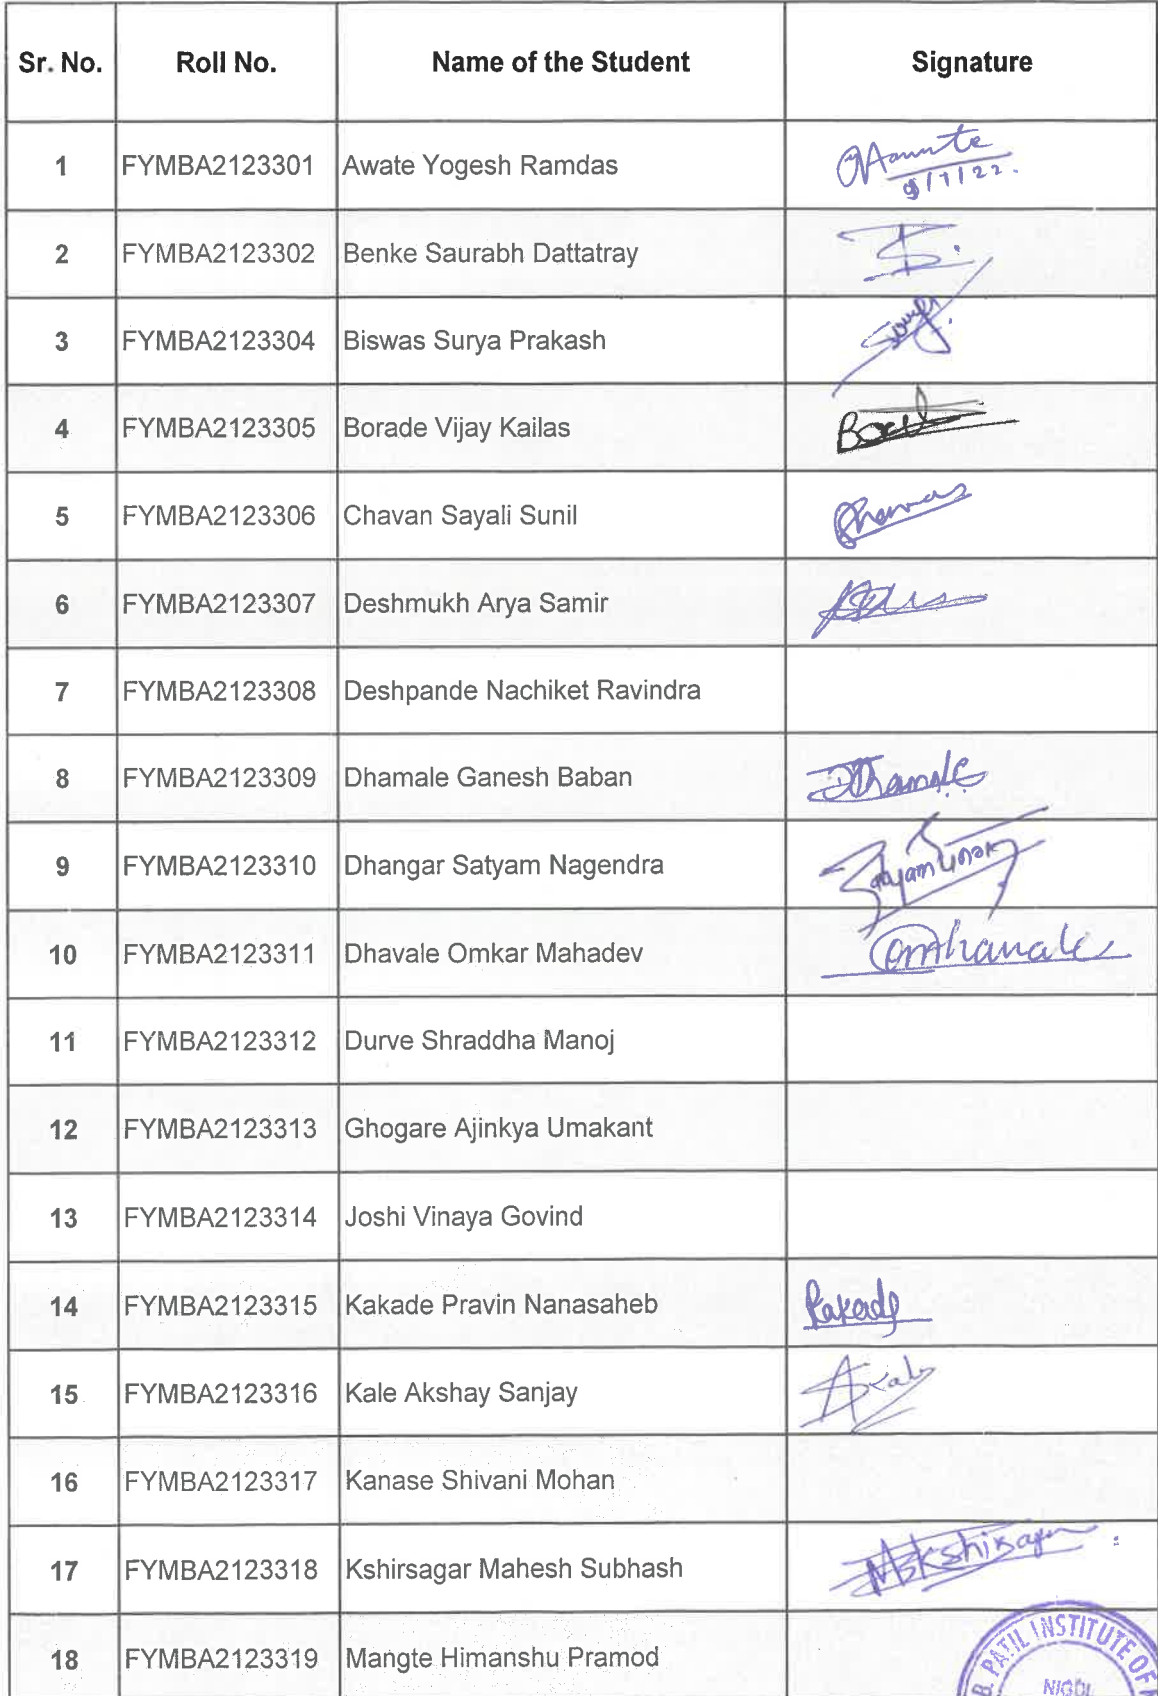 Sr. No. Roll No. Name of the Student Signature
1 FYMBA2123301 Awate Yogesh Ramdas
9/7/22.
2 FYMBA2123302 Benke Saurabh Dattatray
3 FYMBA2123304 Biswas Surya Prakash
4 FYMBA2123305 Borade Vijay Kailas
5 FYMBA2123306 Chavan Sayali Sunil
6 FYMBA2123307 Deshmukh Arya Samir
7 FYMBA2123308 Deshpande Nachiket Ravindra
8 FYMBA2123309 Dhamale Ganesh Baban Dhamale
9 FYMBA2123310 Dhangar Satyam Nagendra
10 FYMBA2123311 Dhavale Omkar Mahadev
11 FYMBA2123312 Durve Shraddha Manoj
12 FYMBA2123313 Ghogare Ajinkya Umakant
13 FYMBA2123314 Joshi Vinaya Govind
14 FYMBA2123315 Kakade Pravin Nanasaheb
15 FYMBA2123316 Kale Akshay Sanjay
16 FYMBA2123317 Kanase Shivani Mohan
17 FYMBA2123318 Kshirsagar Mahesh Subhash
18 FYMBA2123319 Mangte Himanshu Pramod
B. PATIL INSTITUTE OF
NIGDI